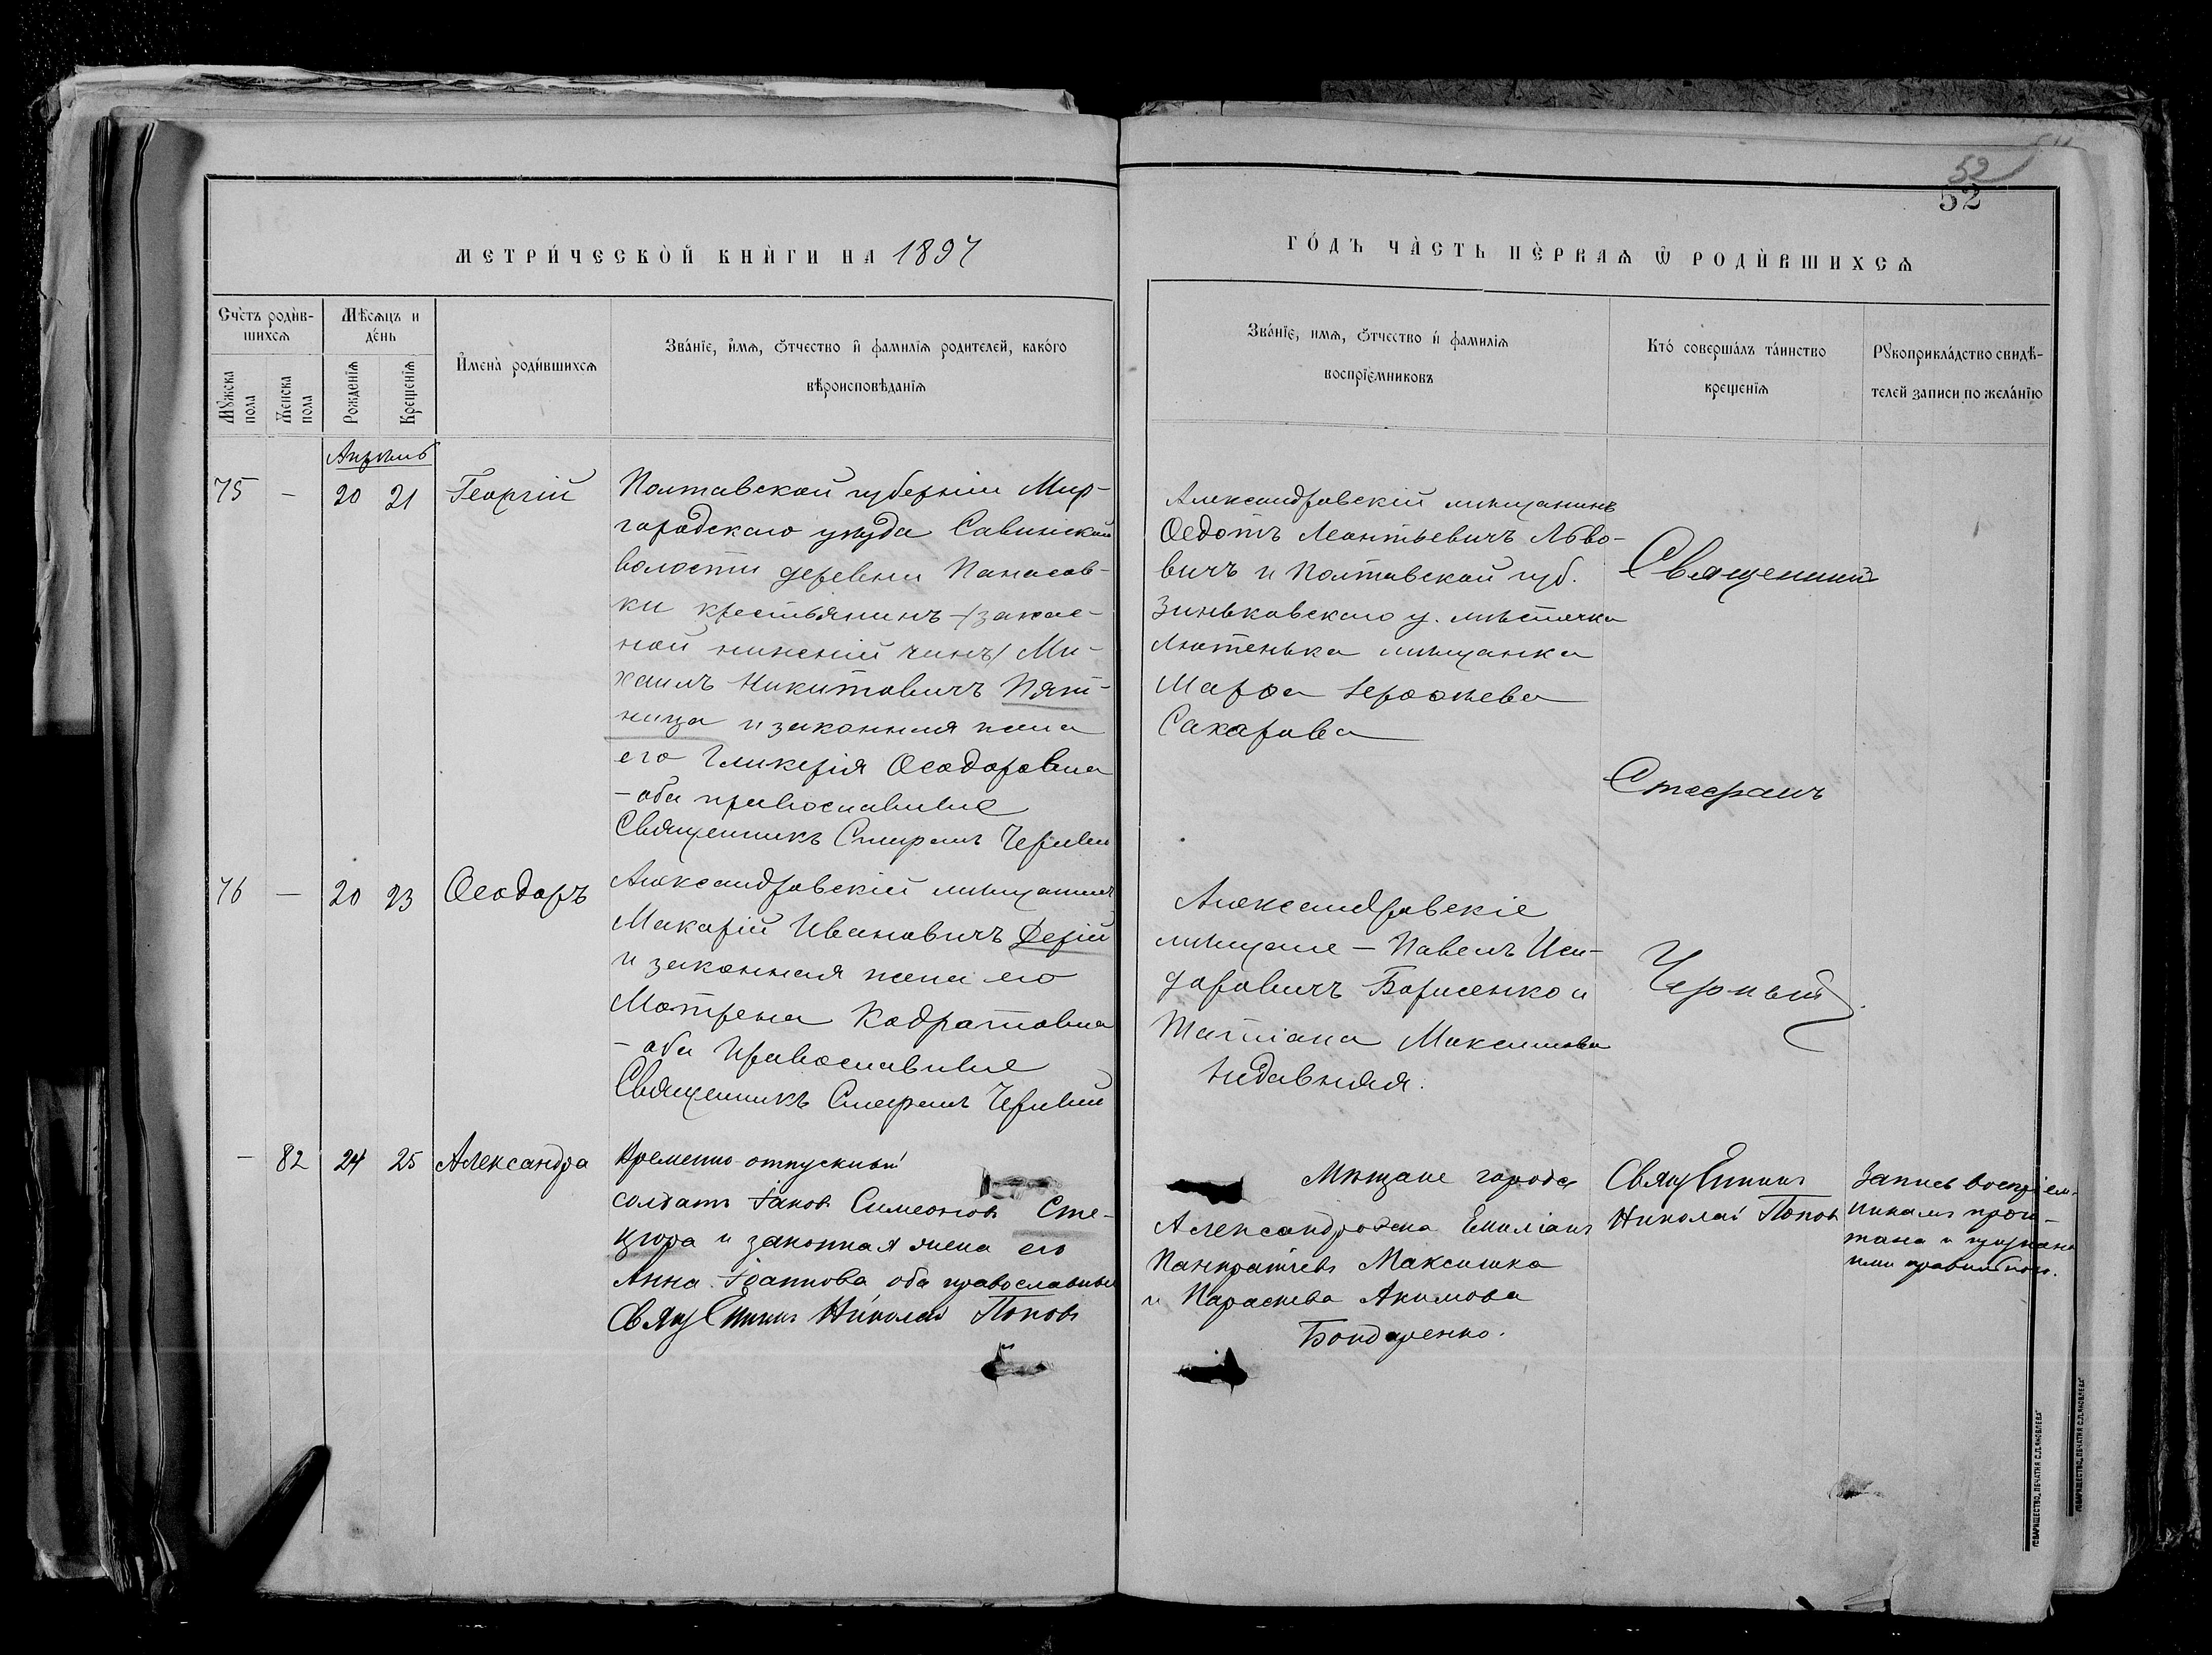 52
52
МЕТРИ́ЧЕСКОЙ КНИ́ГИ НА 1897
ГО́ДЪ ЧА́СТЬ ПЕ́РВАѦ Ѿ РОДИ́ВШИХСѦ
Сче́тъ роди́в-
шихсѧ
Мѣ́сѧцъ и
де́нь
Мꙋжска
пола
Женска
пола
Рожденїѧ
Крещенїѧ
И҆мена̀ роди́вшихсѧ
Зва́нїе, и҆́мѧ, ѻ҆́тчество и҆ фамилїѧ родителей, како́го
вѣроисповѣ́данїѧ
Зва́нїе, имѧ, ѻ҆́тчество и҆ фамилїѧ
воспрїе́мниковъ
Кто̀ соверша́лъ та́инство
крещенїѧ
Рꙋкоприкла́дство свидѣ́-
телей записи по жела́нїю
Апрѣль
75 – 20 21 Георгій
Полтавской губерніи Мир-
городскаго уѣзда Савинской
волости деревни Панасов-
ки крестьянинъ /запас-
ной нижній чинъ/ Ми-
хаилъ Никитовичъ Пят-
ница и законная жена
его Гликерія Ѳеодоровна
– оба православные
Священникъ Стефанъ Черный
Александровскій мѣщанинъ
Ѳедотъ Леонтьевичъ Льво-
вичъ и Полтавской губ.
Зиньковскаго у. мѣстечка
Лютенька мѣщанка
Марѳа
Сахарова
Священникъ
Стефанъ
Черный.
76 – 20 23 Ѳеодоръ
Александровскій мѣщанинъ
Макарій Ивановичъ Дерій
и законная жена его
Матрена Кодратовна
– оба Православные
Священникъ Стефанъ Черный
Александровскіе
мѣщане – Павелъ Иси-
доровичъ Борисенко и
Татіана Максимова
Недавняя.
– 82 24 25 Александра
Временно-отпускный
солдатъ Іаковъ Симеоновъ Сте-
цюра и законная жена его
Анна Іоаннова оба православные
Священникъ Николай Поповъ
Мѣщане города
Александровска Емиліанъ
Панкратіевъ Максимко
и Параскева Акимова
Бондаренко.
Священникъ
Николай Поповъ
Запись воспріем-
никамъ прочи-
тана и признана
ими правильною.
ТОВАРИЩЕСТВО „ПЕЧАТНЯ С.П. ЯКОВЛЕВА"
ТОВАРИЩЕСТВО „ПЕЧАТНЯ С.П. ЯКОВЛЕВА"